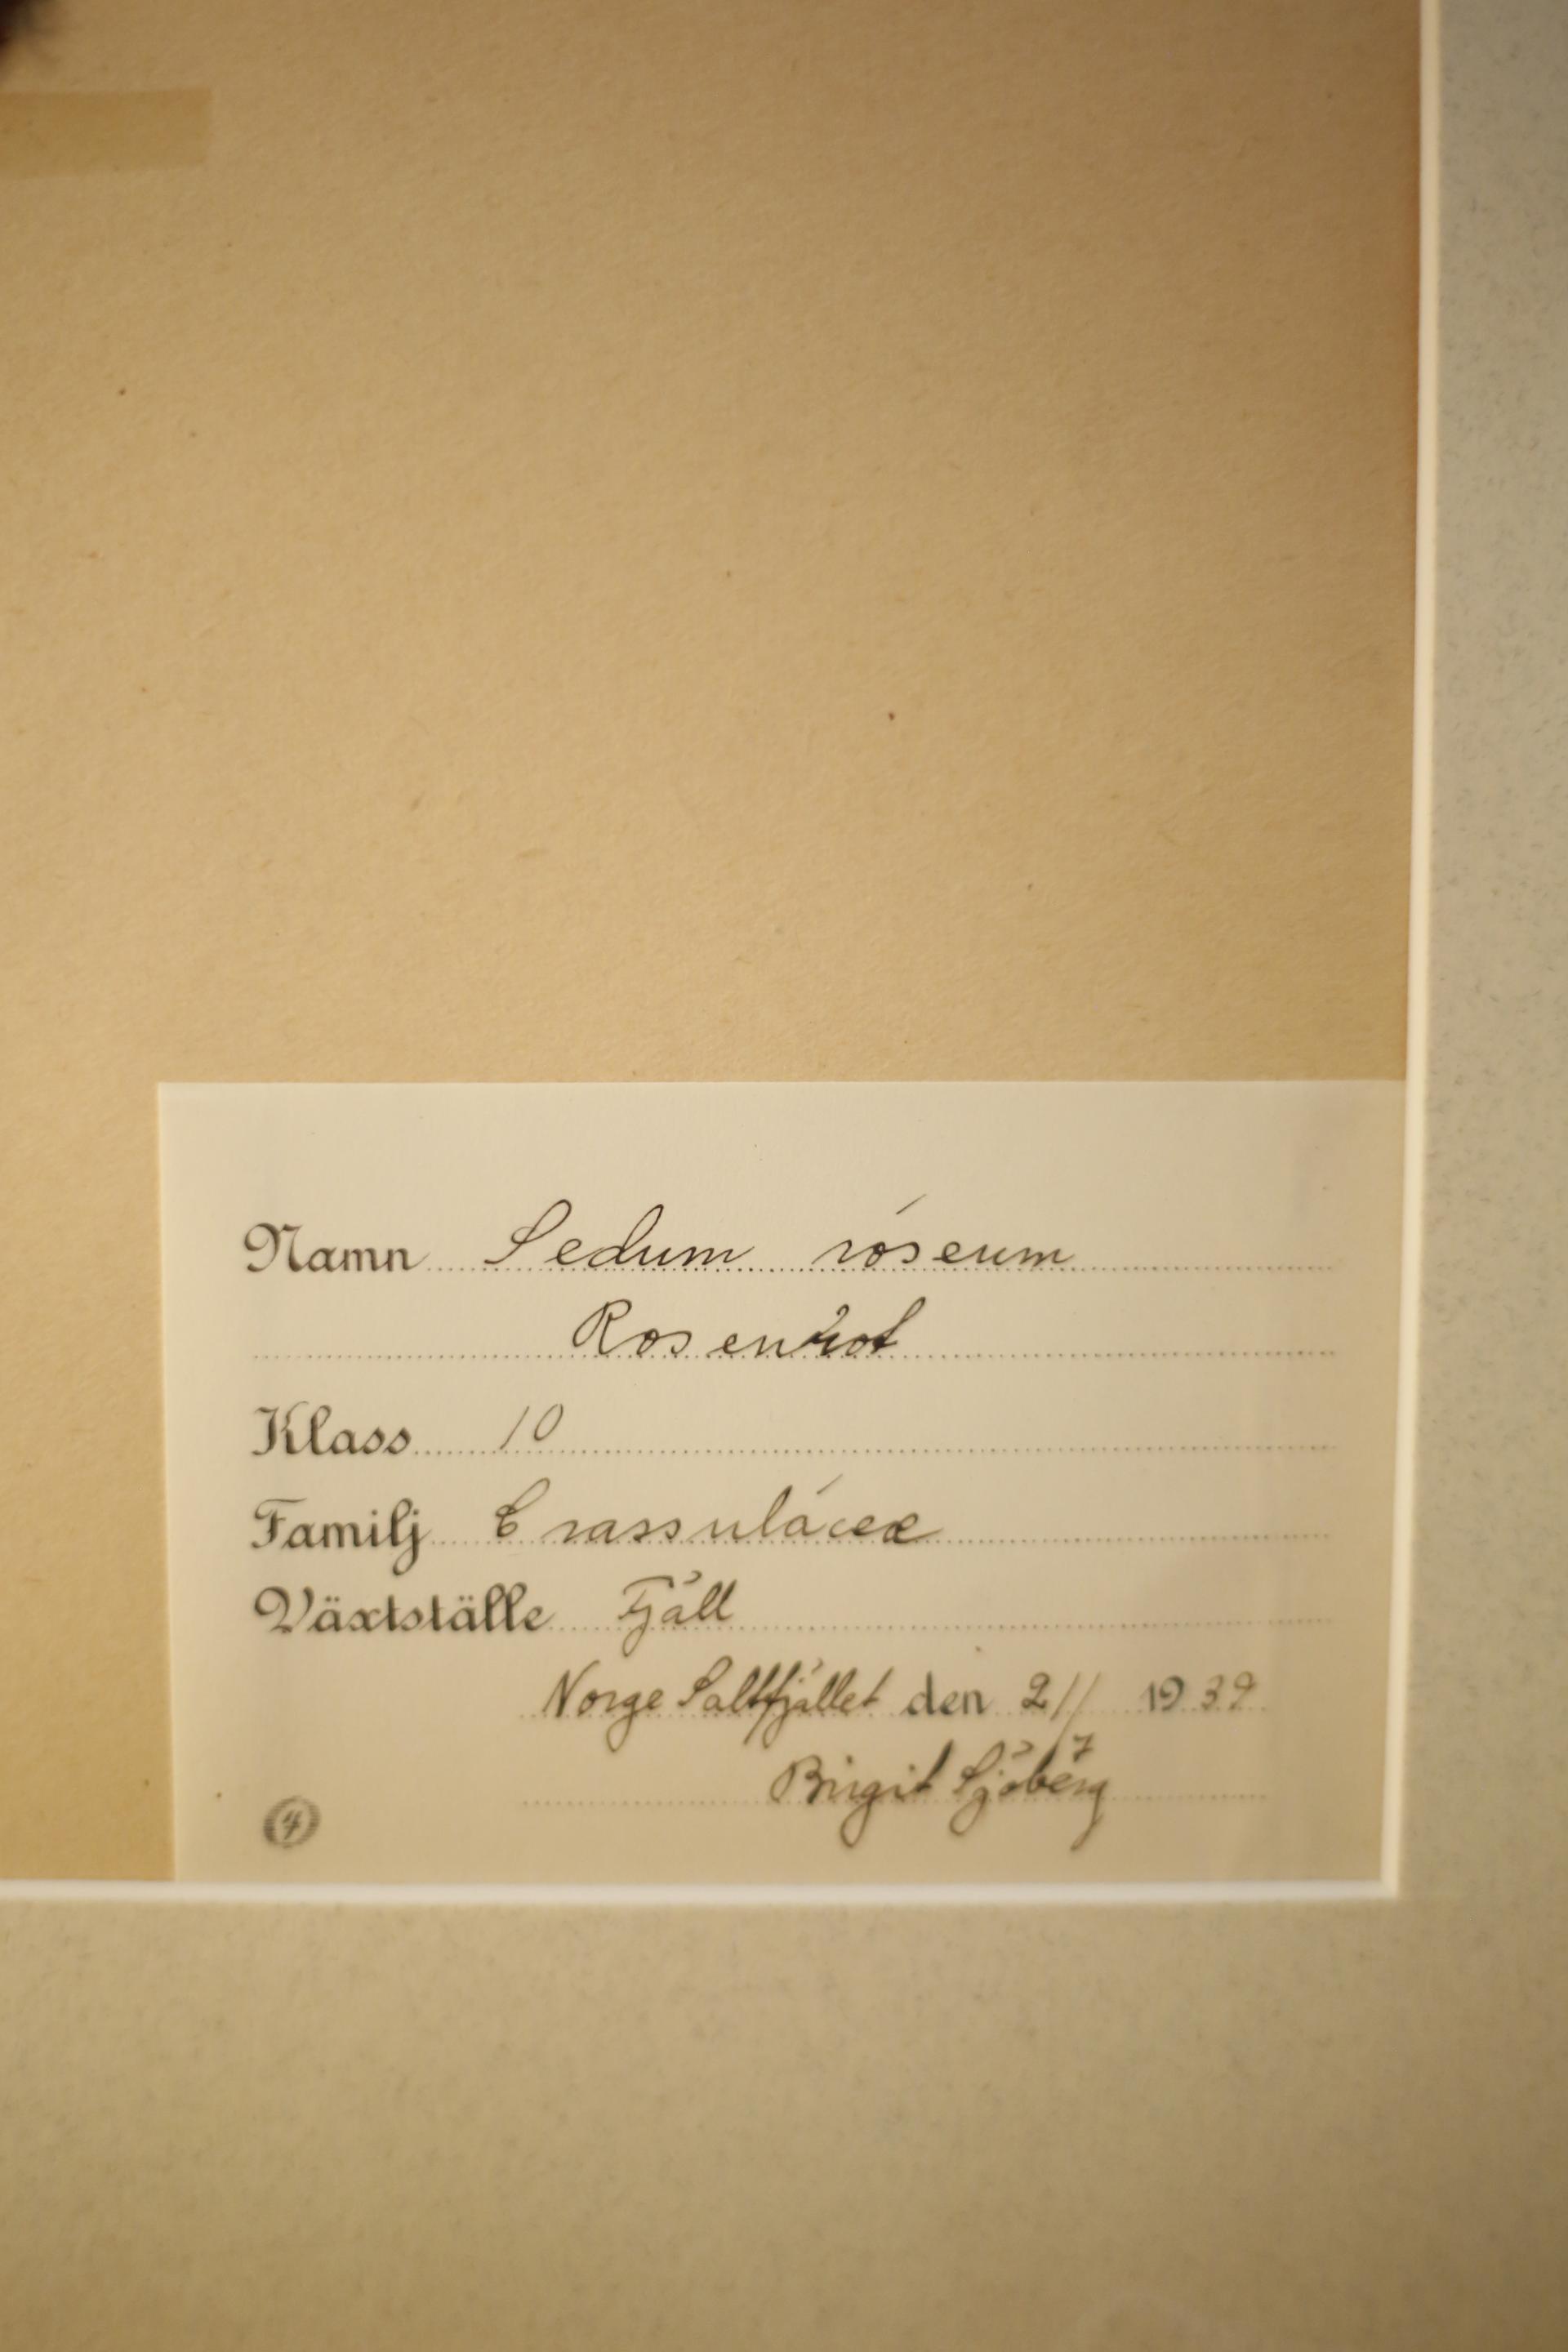 Namn Sedum róseum
Rosenrot
Klass 10
Familj Crassuláceæ
Växtställe Fjäll
Norge Saltfjället den 21/7 1939
Birgit Sjöberg
4